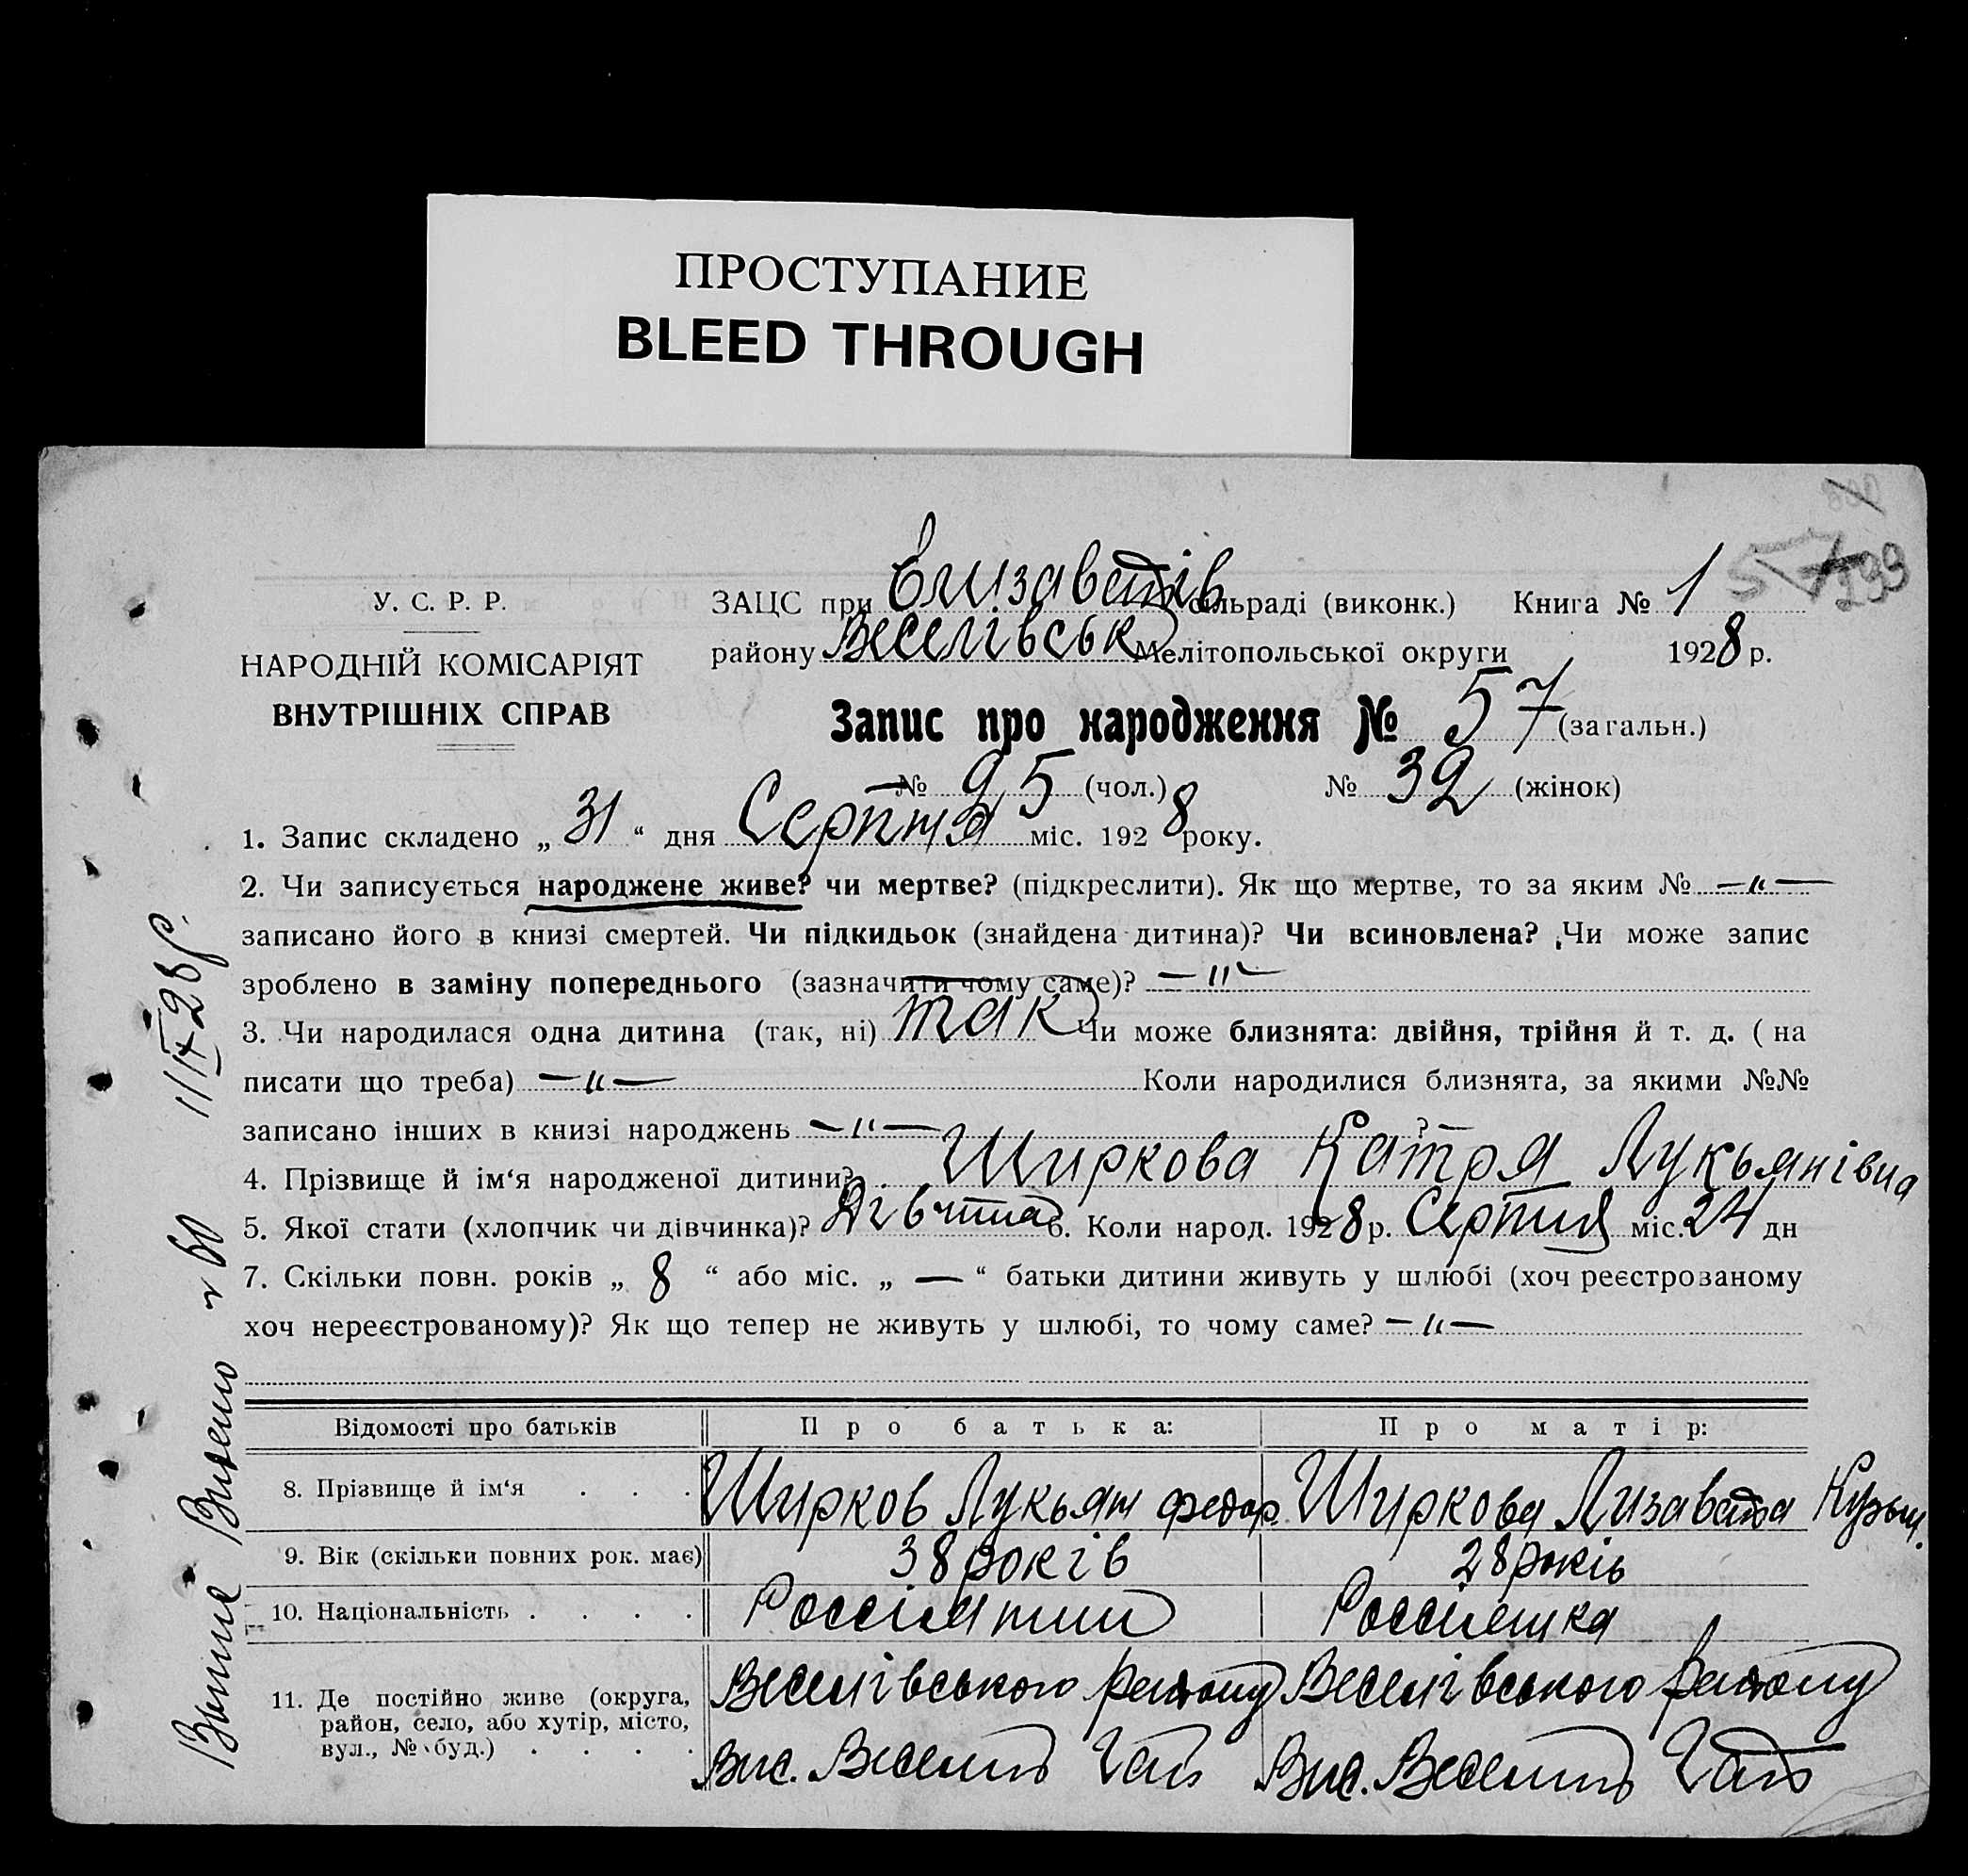 ПРОСТУПАНИЕ
BLEED THROUGH
57 299
У. С. Р. Р.
НАРОДНІЙ КОМІСАРІЯТ
ВНУТРІШНІХ СПРАВ
ЗАЦС при Єлизаветів сільраді (виконк.) Книга № 1
району Веселівськ Мелітопольської округи 1928 р.
Запис про народження № 57 (загальн.)
№ 25 (чол.) № 32 (жінок)
1. Запис складено „ 31 “ дня Серпня міс. 1928 року.
2. Чи записується народжене живе? чи мертве? (підкреслити). Як що мертве, то за яким № —„—
записано його в книзі смертей. Чи підкидьок (знайдена дитина)? Чи всиновлена? Чи може запис
зроблено в заміну попереднього (зазначити чому саме)? —„—
3. Чи народилася одна дитина (так, ні) так Чи може близнята: двійня, трійня й т. д. ( на
писати що треба) —„— Коли народилися близнята, за якими №№
записано інших в книзі народжень —„— ?
4. Прізвище й ім‘я народженої дитини? Ширкова Катря Лукьянівна
5. Якої стати (хлопчик чи дівчинка)? Дівчина 6. Коли народ. 1928 р. Серпня міс. 24 дн
7. Скільки повн. років „ 8 “ або міс. „ — “ батьки дитини живуть у шлюбі (хоч реєстрованому
хоч нереєстрованому)? Як що тепер не живуть у шлюбі, то чому саме? —„—
Відомості про батьків Про батька: Про матір:
8. Прізвище й ім‘я . . . Ширков Лукьян Федор. Ширкова Лизавета Кузьм.
9. Вік (скільки повних рок. має) 38 років 28 років
10. Національність . . . . Россіянин Россіянка
11. Де постійно живе (округа, район, село, або хутір, місто, вул., № буд.) . . . .
Веселівського району Веселівського району
Вис. Веселий Гай Вис. Веселий Гай
11/IX 28 р.